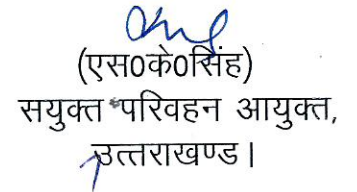 (एस0के0सिंह)
सयुक्त परिवहन आयुक्त,
उत्तराखण्ड।